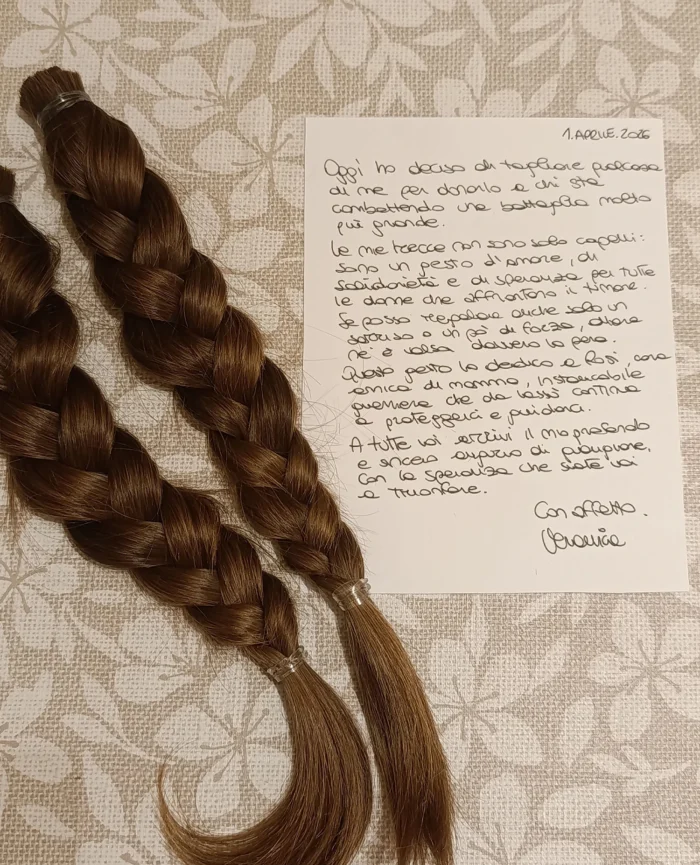 1.APRILE.2026
Oggi ho deciso di tagliare qualcosa
di me per donarlo a chi sta
combattendo una battaglia molto
più grande.
Le mie trecce non sono solo capelli:
sono un gesto d'amore, di
solidarietà e di speranza per tutte
le donne che affrontano il tumore.
Se posso regalare anche solo un
sorriso o un pò di forza, allora
ne è valsa davvero la pena.
Questo gesto lo dedico a Rosi, cara
amica di mamma, instancabile
guerriera che da lassù continua
a proteggerci e guidarci.
A tutte voi arrivi il mio profondo
e sincero augurio di guarigione,
con la speranza che siate voi
a trionfare.
Con affetto.
Veronica